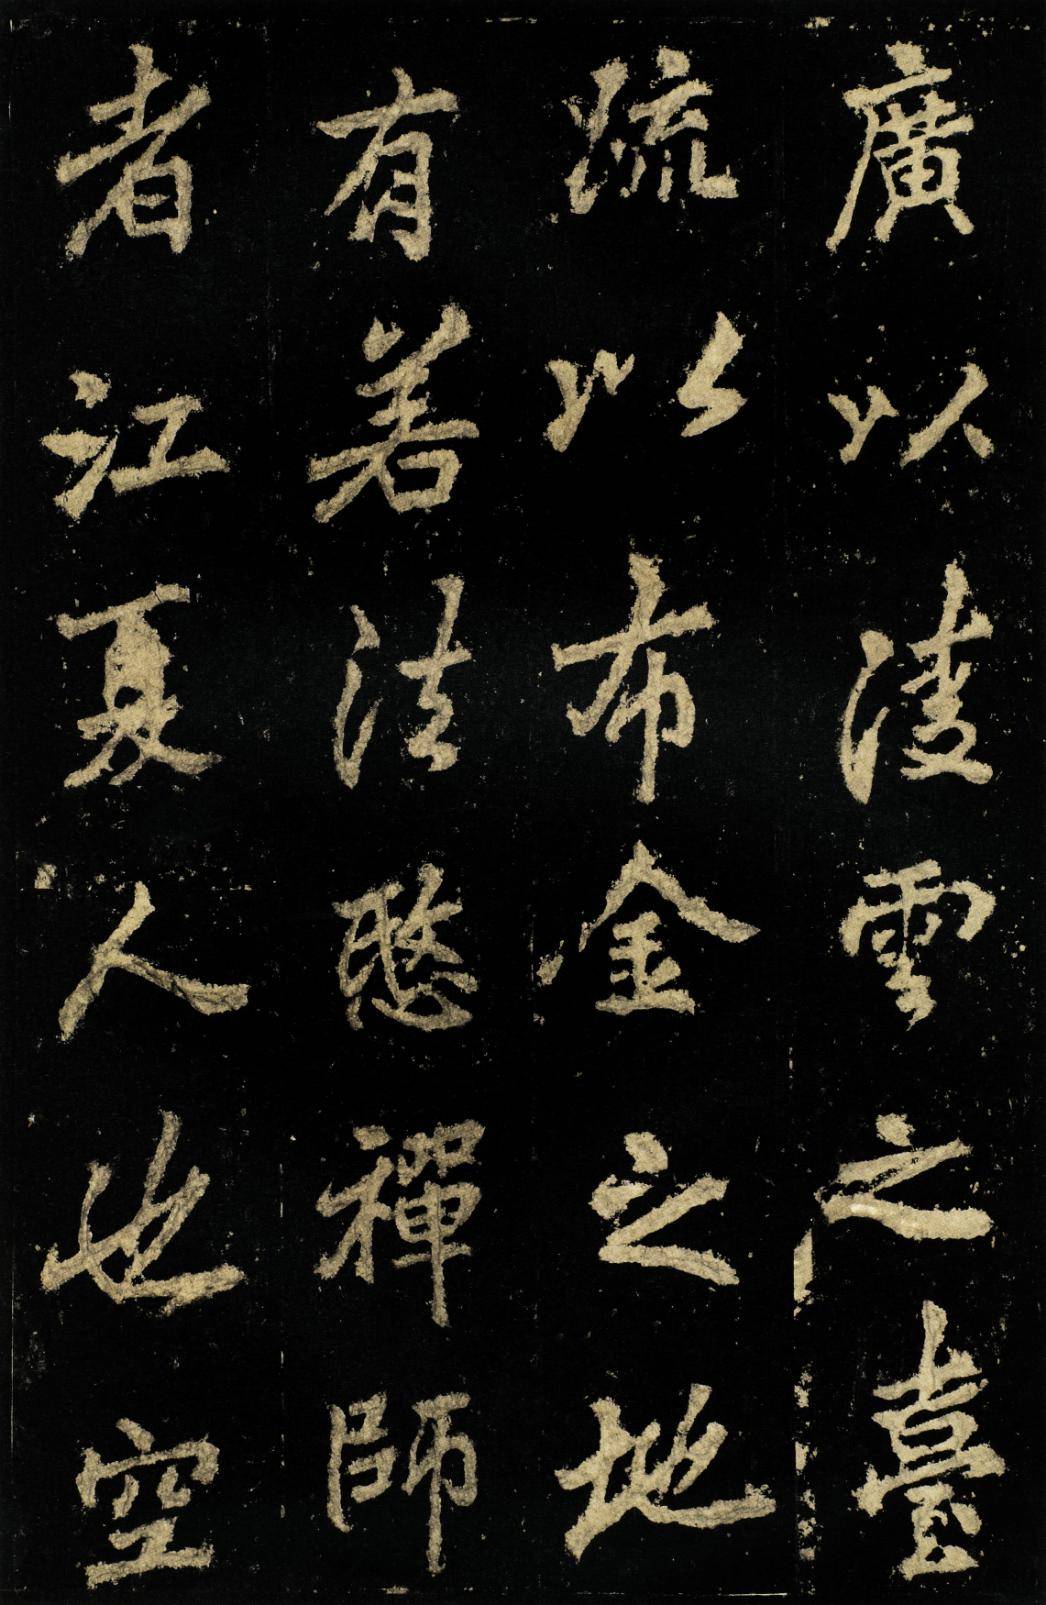 廣以淩雲之臺
疏以布金之地
有若法愍禪師
者江夏人也空